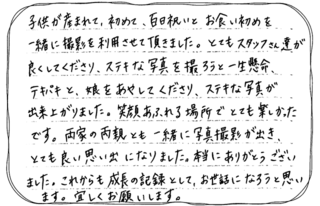 子供が産まれて、初めて、百日祝いと お食い初めを
一緒に撮影を利用させて頂きました。とてもスタッフさん達が
良くしてくださり、ステキな写真を撮ろうと一生懸命、
テキパキと、娘をあやしてくださり、ステキな写真が
出来上がりました。笑顔あふれる場所でとても楽しかった
です。両家の両親とも一緒に写真撮影が出き、
とても良い思い出になりました。本当にありがとうござい
ました。これからも成長の記録として、お世話になろうと思い
ます。宜しくお願いします。